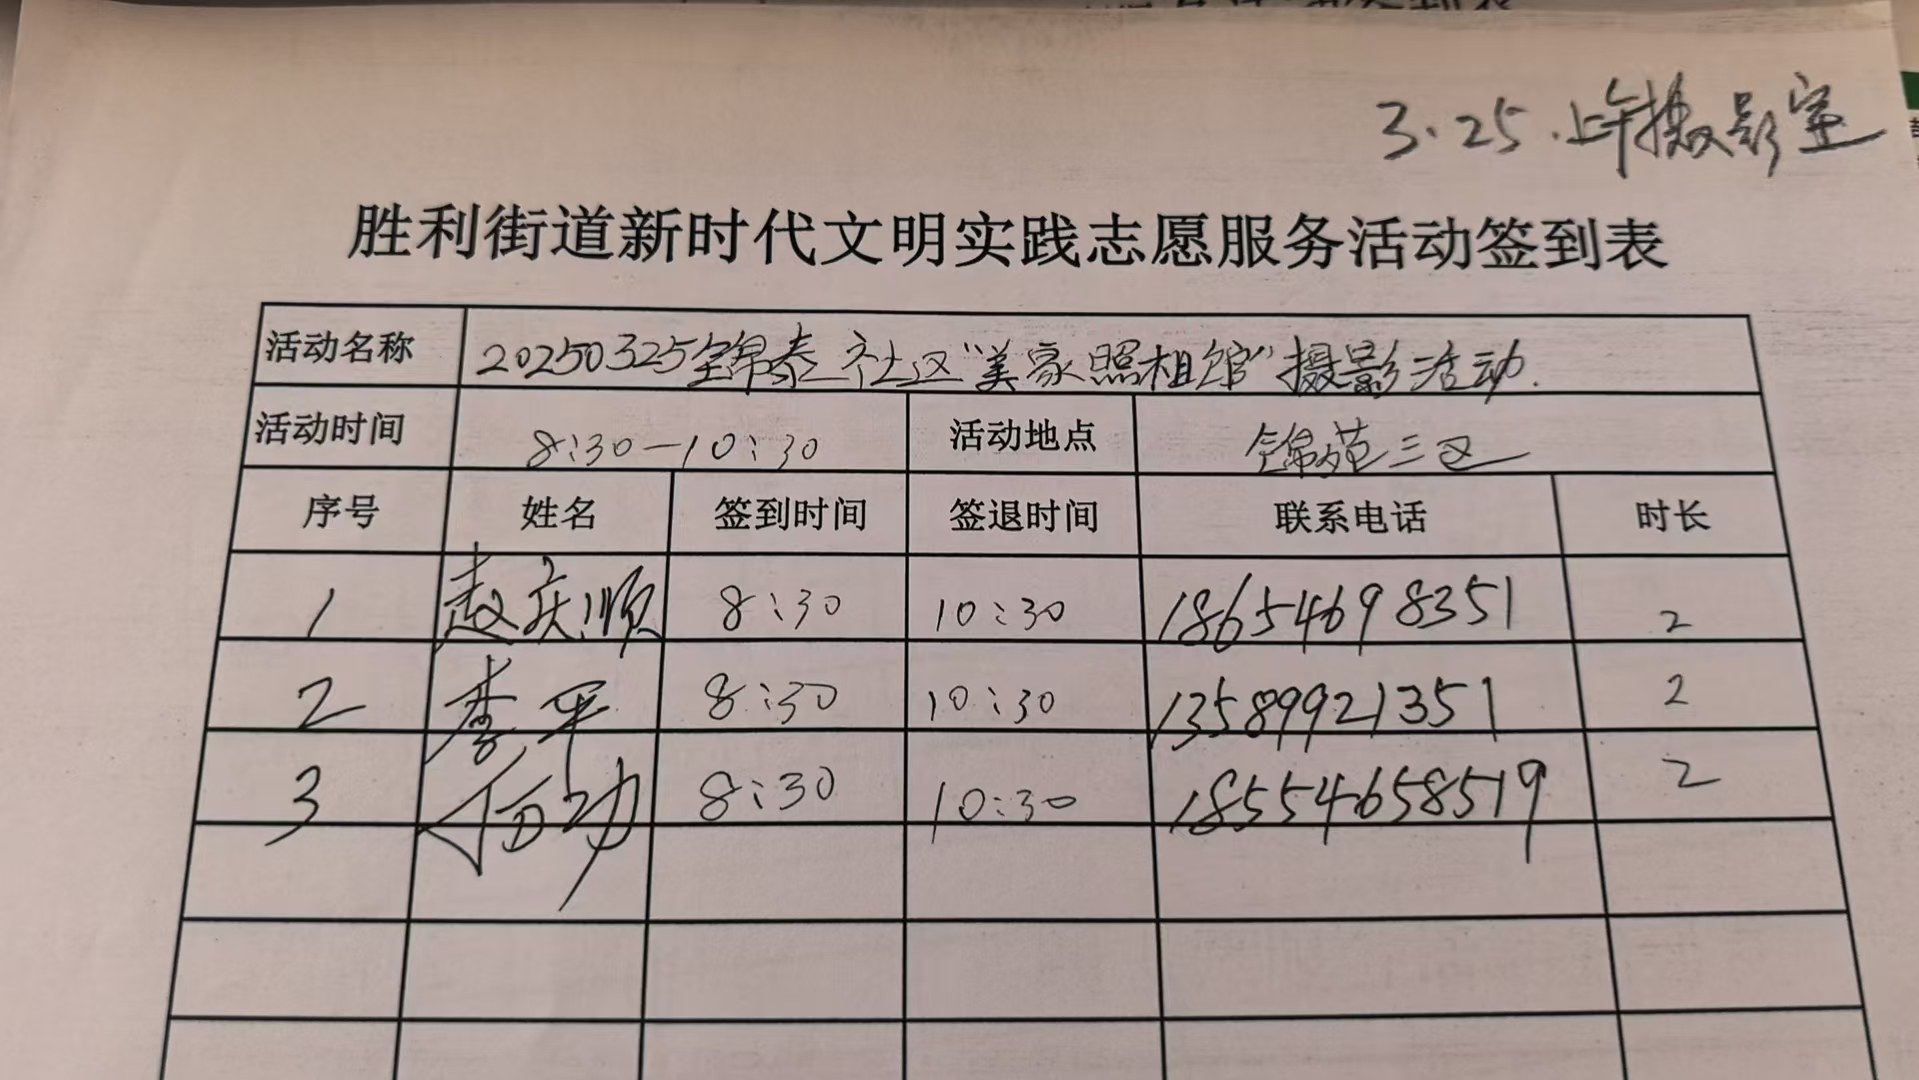 3.25.上午摄影室
胜利街道新时代文明实践志愿服务活动签到表
活动名称 20250325锦泰社区“美家照相馆”摄影活动.
活动时间 8:30—10:30 活动地点 锦苑三区
序号 姓名 签到时间 签退时间 联系电话 时长
1 赵庆顺 8:30 10:30 18654698351 2
2 李平 8:30 10:30 13589921351 2
3 8:30 10:30 18554658519 2